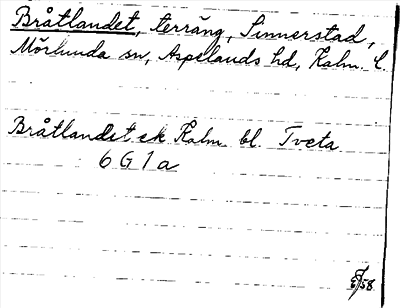 Bråtlandet, terräng, Sinnerstad,
Mörlunda sn, Aspelands hd, Kalm. l.
Bråtlandet ek Kalm. bl. Tveta
6 G 1 a
58